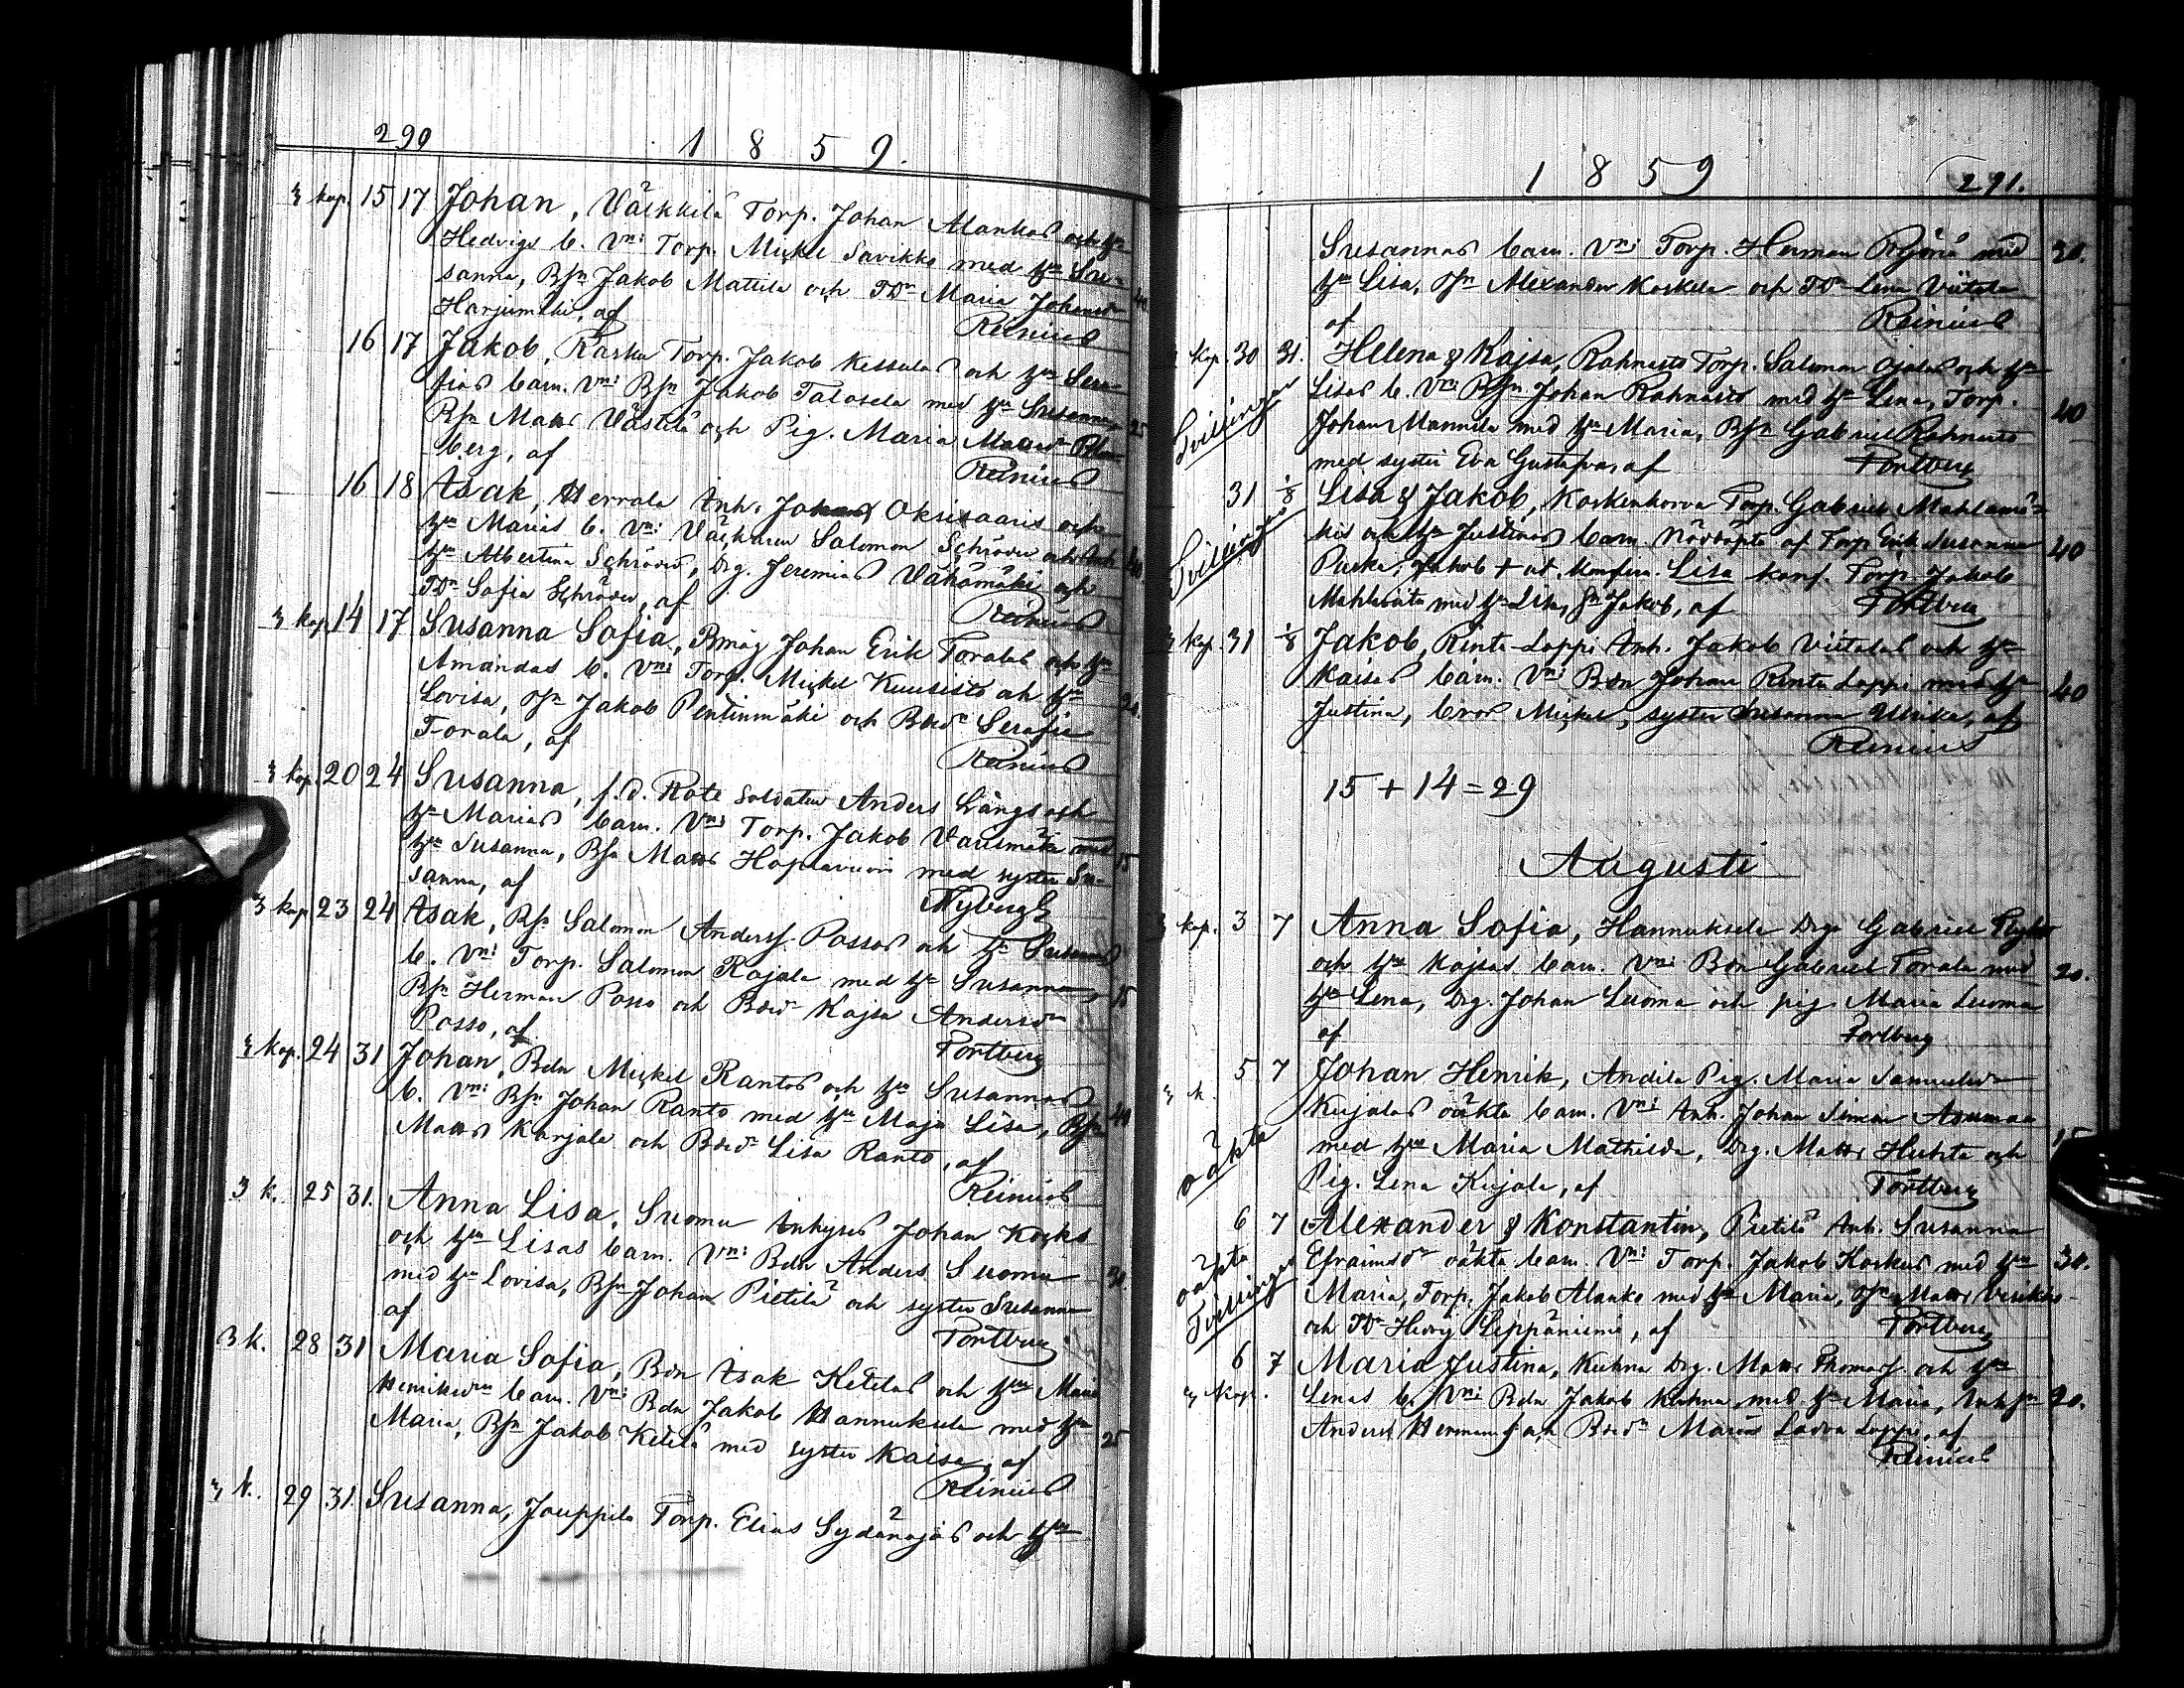 290 1 8 5 9.
3 kop. 15 17 Johan, Väckkilä Torp. Johan Alankos och hu
Hedvigs b. Vn: Torp. Mickel Savikko med hu Su-
sanna, Bsn Jakob Mattila och TDr Maria Johansdr 40
Harjumäki, af Reinius
16 17 Jakob, Rasku Torp. Jakob Kessulas och hu Sera-
fias barn. Vn: Bsn Jakob Talosela med hu Susanna, 25
Bsn Matts Västilä och Pig. Maria
berg, af Reinius
16 18 Isak, Herrala Inh. Oksisaaris och
hu Marias b. Vn: Väckaren Salomon Schröder och 40
hu Albertina Schröder, Drg. Jeremias Vähämäki och
TDr Sofia Schröder, af Reinius
3 kop. 14 17 Susanna Sofia, Bmåg Johan Erik Toralas och hu
Amandas b. Vn: Torp. Mickel Kuusisto och hu
Lovisa, Jsn Jakob Penttinmäki och Bdr Serafia 20.
Torala, af Reinius
3 kop. 20 24 Susanna, f.d. Rote Soldaten Anders Långs och
hu Marias barn. Vn: Torp. Jakob Vausmäki med
hu Susanna, Bsn Matts Haplavuori med syster Su- 15
sanna, af Nyberg
3 kop. 23 24 Isak, Bsn Salomon Andersf. Passos och hu Susannas
b. Vn: Torp. Salomon Rajala med hu Susanna, 15
Bsn Herman Passo och Bdr Kajsa Andersdr
Passo, af Portberg
3 kop. 24 31 Johan, Bdn Mickel Rantos och hu Susannas
b. Vn: Bsn Johan Ranto med hu Maja Lisa, Bsn 40
Matts Karjala och Bdr Lisa Ranto, af
Reinius
3 k. 25 31. Anna Lisa, Suomu Inhyses Johan Kocks
och hu Lisas barn. Vn: Bdn Anders Suomu
med hu Lovisa, Bsn Johan Pietilä och syster Susanna 30.
af Portberg
3 k. 28 31 Maria Sofia, Bdn Isak Ketolas och hu Maria
Henriksdrs barn. Vn: Bdn Jakob Hannuksela med hu
Maria, Bsn Jakob Ketola med syster Kaisa, af 25
Reinius
3 k. 29 31. Susanna, Jouppila Torp. Elias Sydänojas och hu
1 8 5 9 291.
Susannas barn. Vn: Torp. Herman Röjöriä med 20.
hu Lisa, Jsn Alexander Koskela och TDr Lena Viitala
af Reinius
kop. 30 31. Helena & Kajsa, Rahnasto Torp. Salomon Ojalas och hu
Tvillingar Lisas b. Vn: Bsn Johan Rahnasto med hu Lena, Torp. 40
Johan Mannila med hu Maria, Bsn Gabriel Rahnasto
med syster Eva Gustafva, af Portberg
31 1/8 Lisa & Jakob, Koskenkorva Torp. Gabriel Mahlamä-
Tvillingar kis och hu Justinas barn. Nöddöpte af Torp. Erik Susanna 40
Puska, Jakob † ut. konfirm. Lisa konf. Torp. Jakob
med hu Lisa, Jsn Jakob, af Portberg
3 kop. 31 1/8 Jakob, Rinta-Loppi Inh. Jakob Viitalas och hu
Kaisas barn. Vn: Bdn Johan Rinta Loppi med hu 40
Justina, bror Mickel, syster Susanna Ulrika, af
Reinius
15 + 14 = 29
Augusti
3 kop. 3 7 Anna Sofia, Hannuksela Drg. Gabriel
och hu Kajsas barn. Vn: Bdn Gabriel Torala med 20.
hu Lena, Drg. Johan Luoma och pig. Maria Luoma
af Portberg
3 k. 5 7 Johan Henrik, Andila Pig. Maria Samuelsdr
oäkta Kujalas oäkta barn. Vn: Inh. Johan Simon Asumaa
med hu Maria Mathilda, Drg. Matts Huhta och 15
Pig. Lena Kujala, af Portberg
6 7 Alexander & Konstantin, Pietilä Inh. Susanna
oäkta Efraimsdr oäkta barn. Vn: Torp. Jakob Koskus med hu 30.
Tvillingar Maria, Torp. Jakob Alanko med hu Maria, Jsn Matts
och TDr Hedvig Leppäniemi, af Portberg
6 7 Maria Justina, Kuhna Drg. Matts Thomasf. och hu
3 kop. Lenas b. Vn: Bdn Jakob Kuhna med hu Maria, Inhsn 20.
Anders Hermansf och Bdr Maria Ladva Loppi, af
Reinius